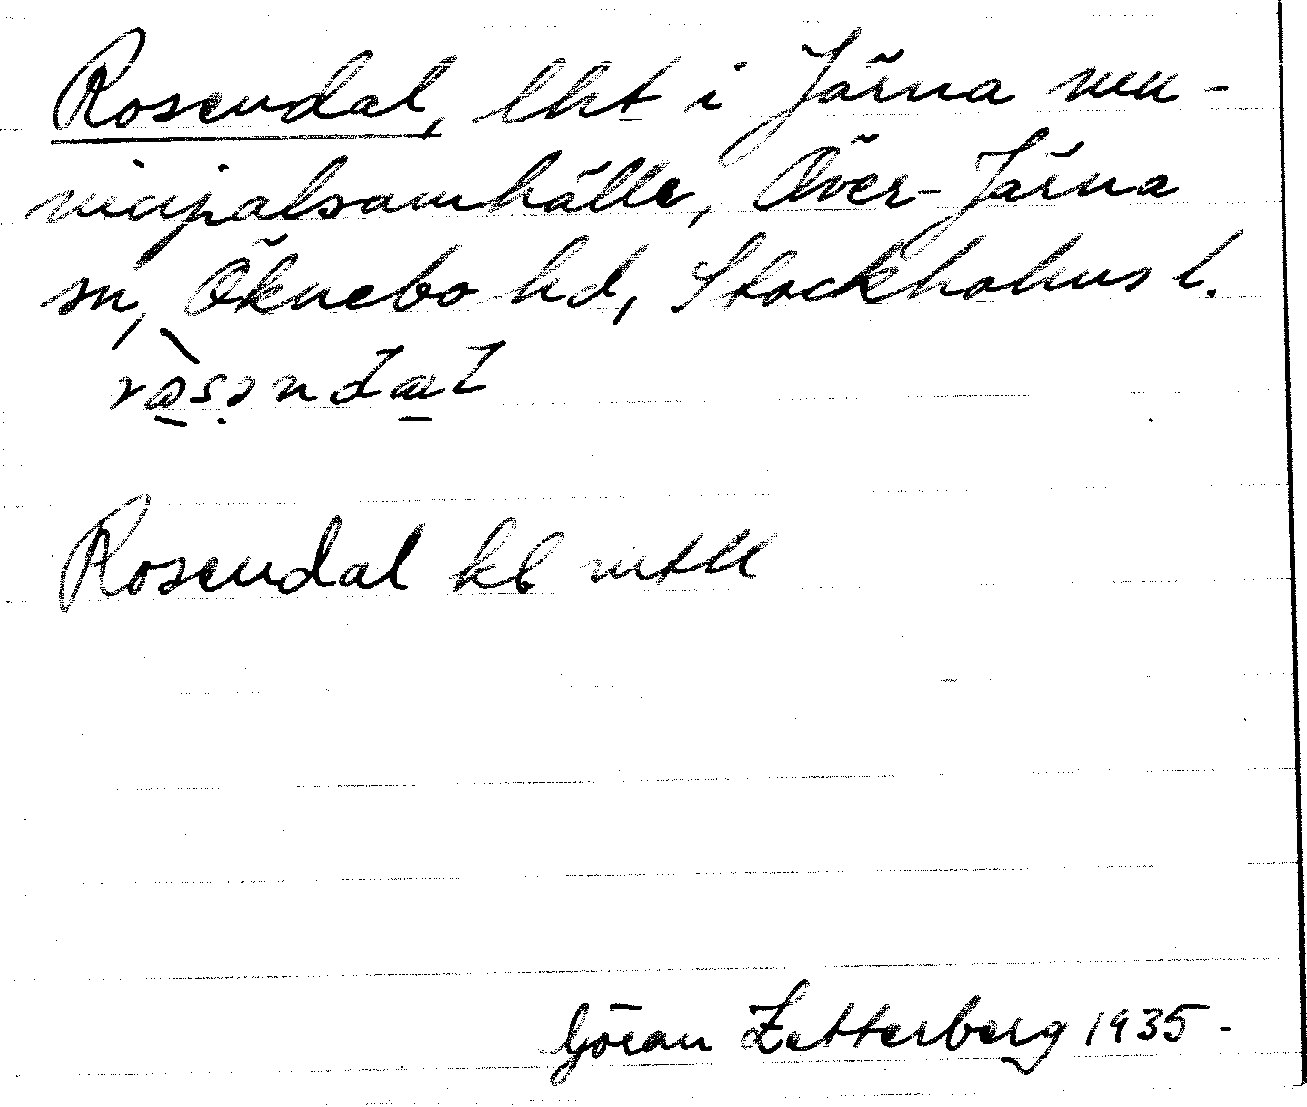 Rosendal, lht i Järna mu-
nicipalsamhälle, Över-Järna
sn, Öknebo hd, Stockholms l.
Rosendal kb mtll
Göran Zetterberg 1935-